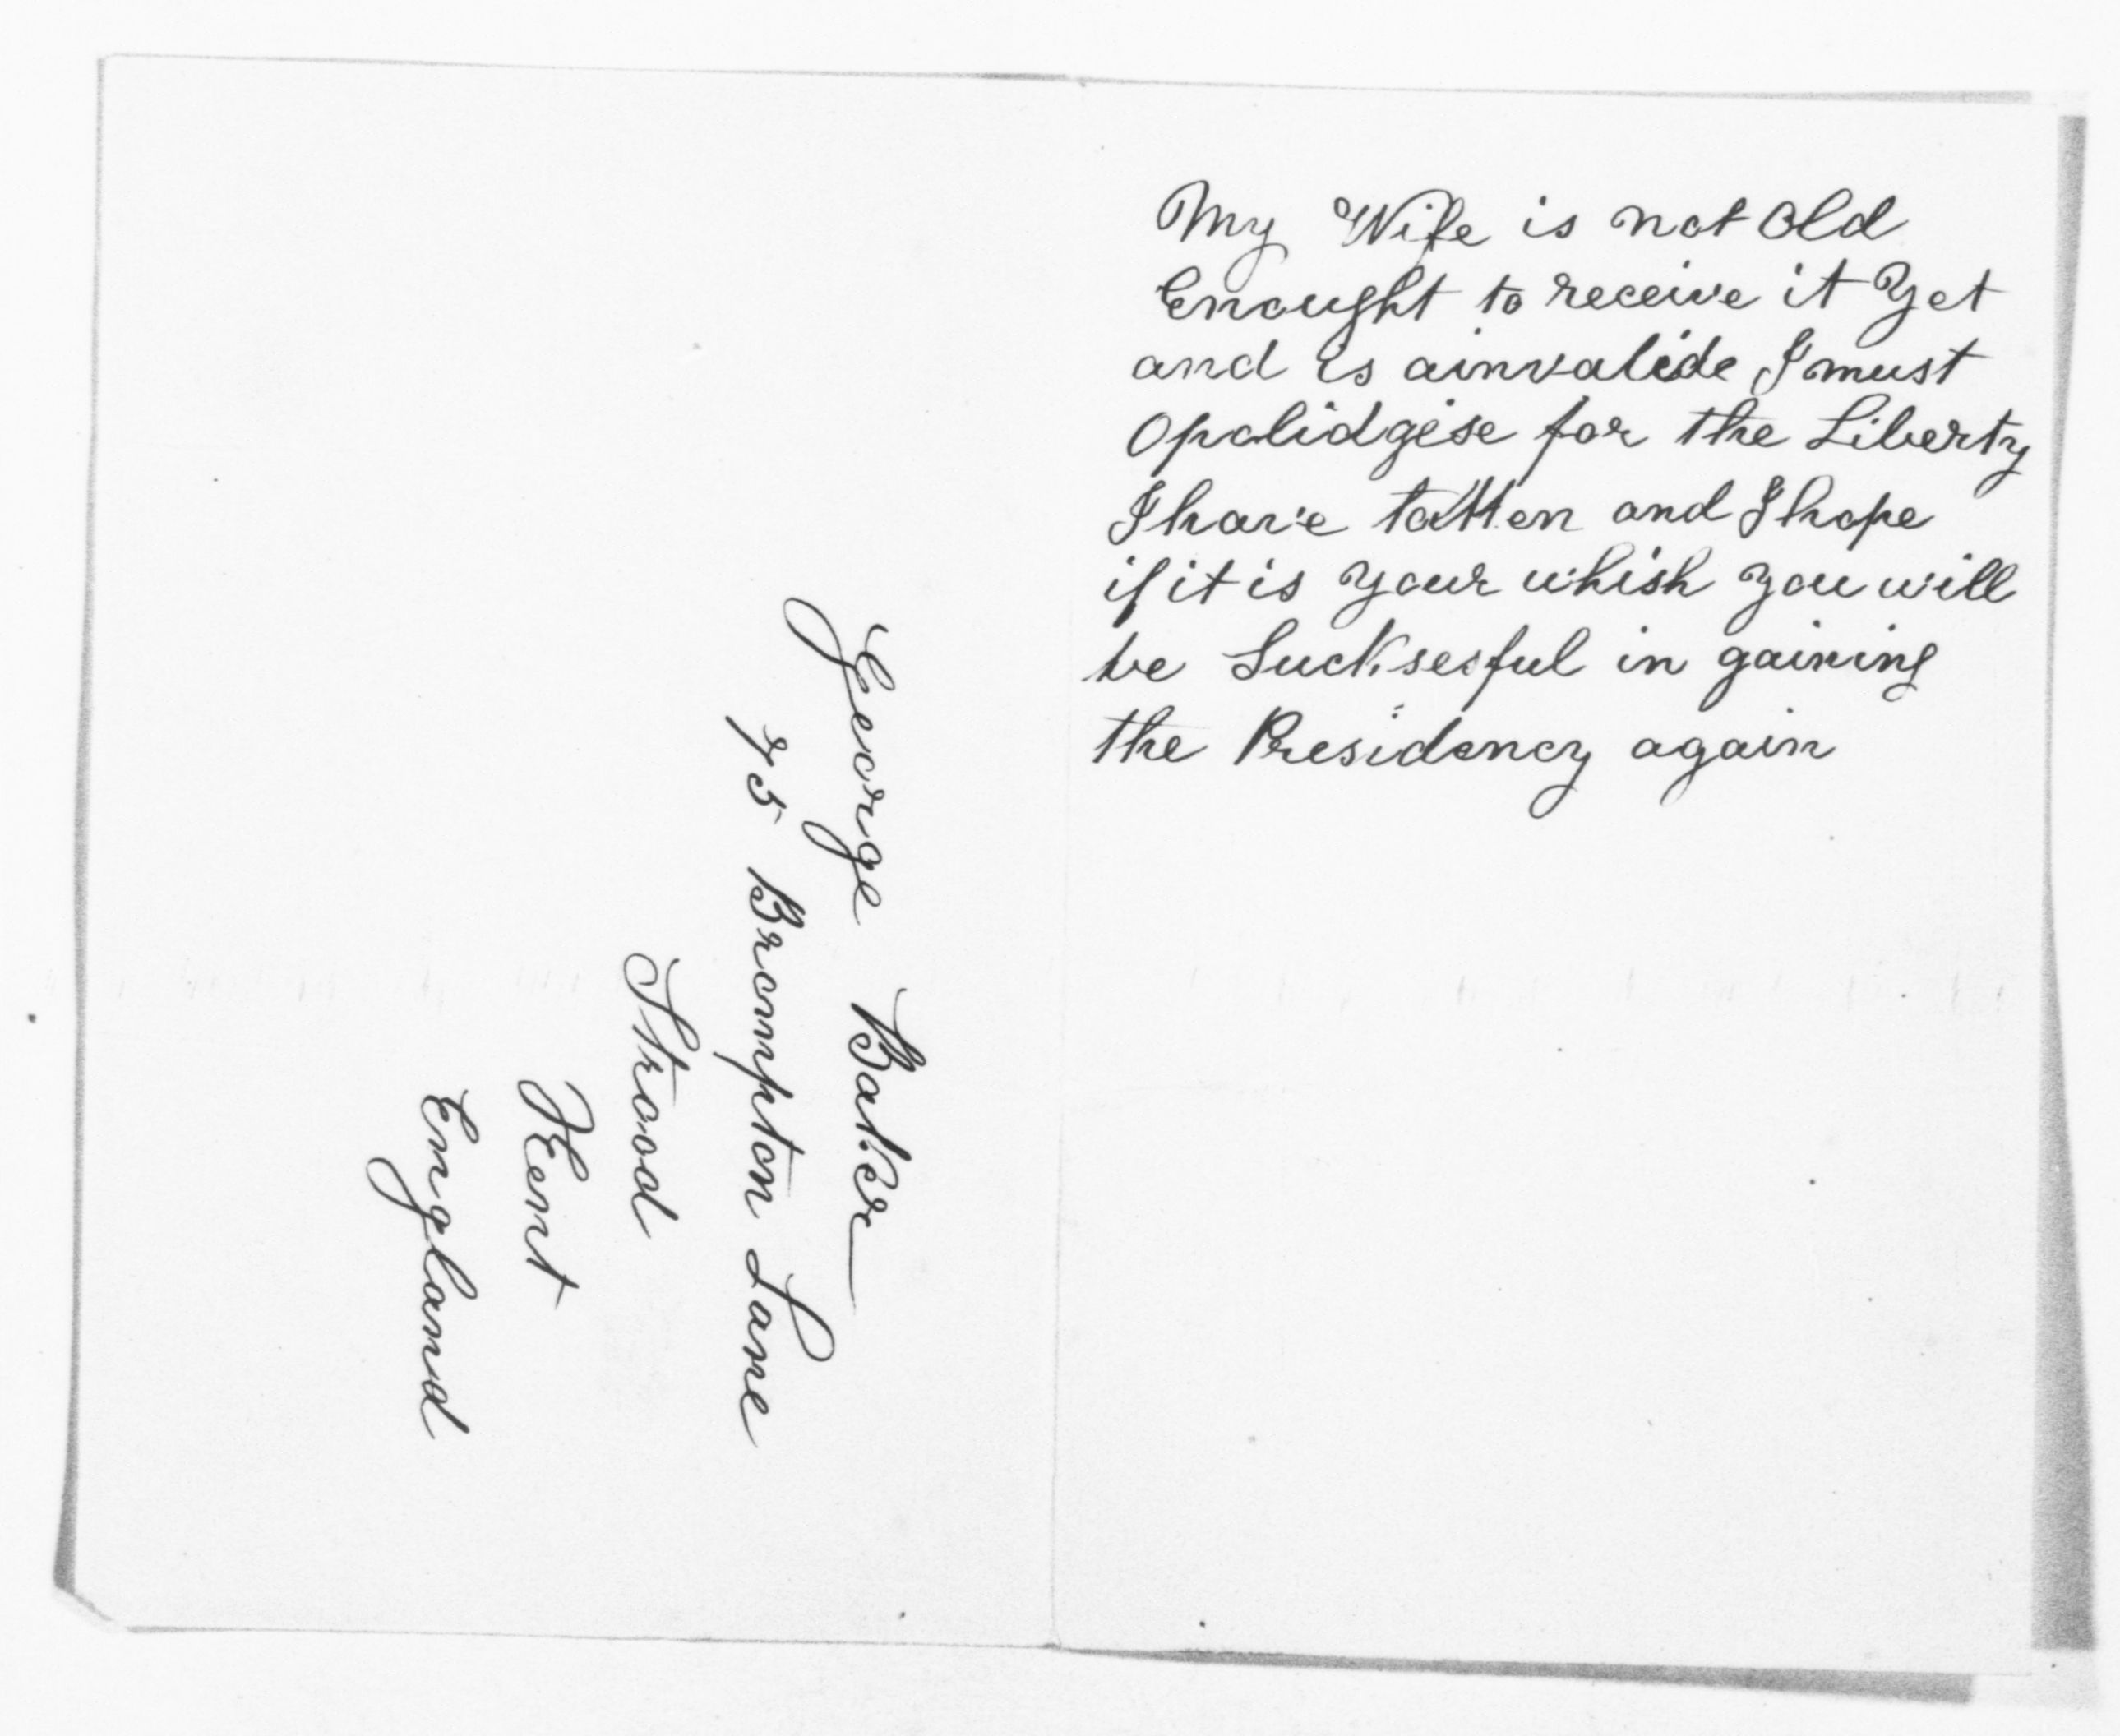 My Wife is not Old
Enought to receive it Yet
and is ainvalide I must
Opolidgise for the Liberty
I have tatten and I hope
if it is your whish you will
be Sucksesful in gaining
the Presidency again
George Baker
75 Brompton Lane
Strood
Kent
England